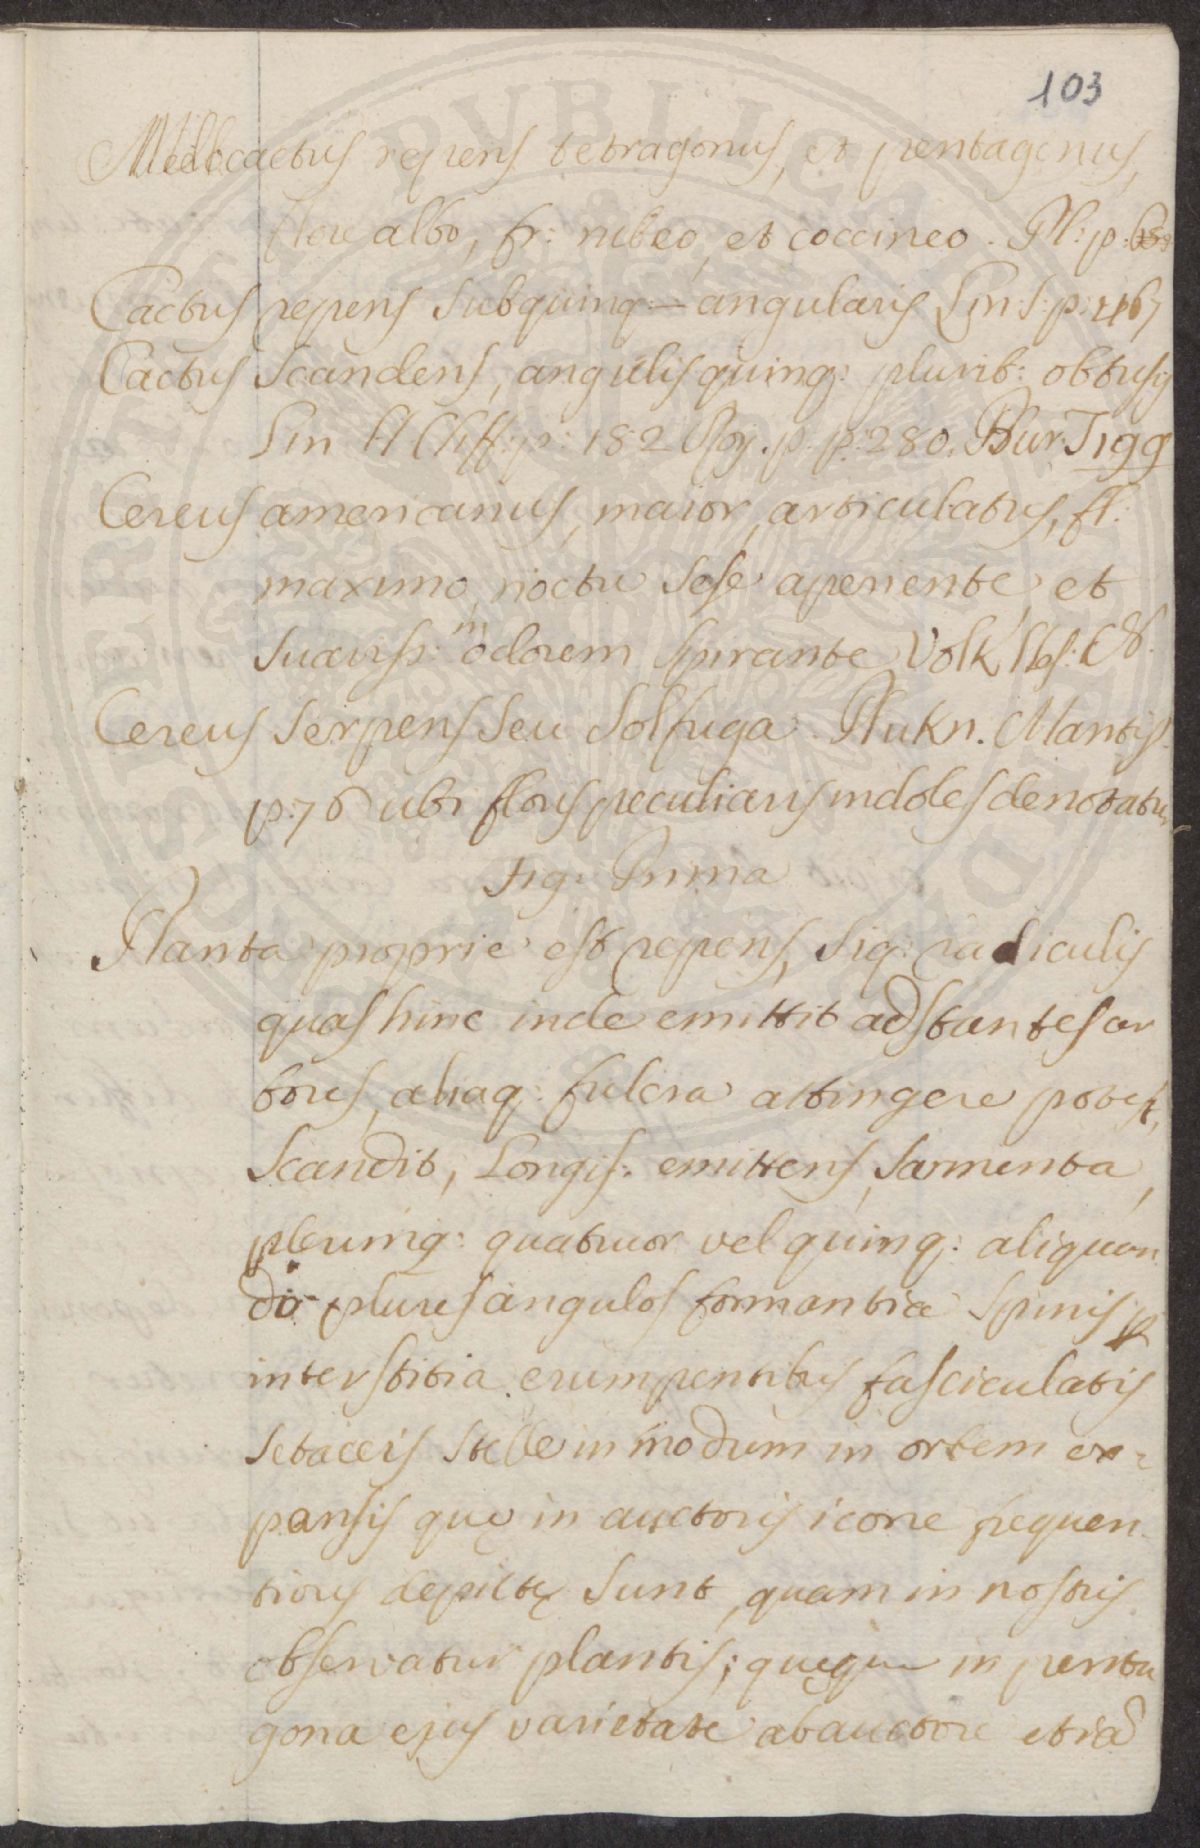 103
Melocactus repens tetragonus, et pentagonus,
flore albo, fr: rubeo, et coccineo. Pl: p:
Cactus repens subquinq:-angularis Lin: S: p: 467
Cactus scandens, angulis quinq: plurib: obtusis
Lin H Cliff: p: 182 Roy. p. p: 280. Bur T 199
Cereus americanus, maior, articulatus, fl:
maximo, noctu sese aperiente, et
suaviss:m odorem spirante Volk Hes:
Cereus serpens seu Solfuga. Plukn. Mantiss.
p: 76 ubi floris peculiaris indoles denotatur
Fig: Prima
Planta proprie est repens, siq: radiculis
quas hinc inde emittit adstantes ar
bores, aliaq: fulcra attingere potest,
scandit, Longis: emittens, sarmenta,
plerumq: quatuor vel quinq: aliquan
do plures angulos formantia spinis p
interstitia erumpentibus fasciculatis
setaceis stelle in modum in orbem ex-
pansis quę in auctoris icone frequen
tiores depictę sunt, quam in nostris
observatur plantis; quęque in penta
gona ejus varietate ab auctore etiã